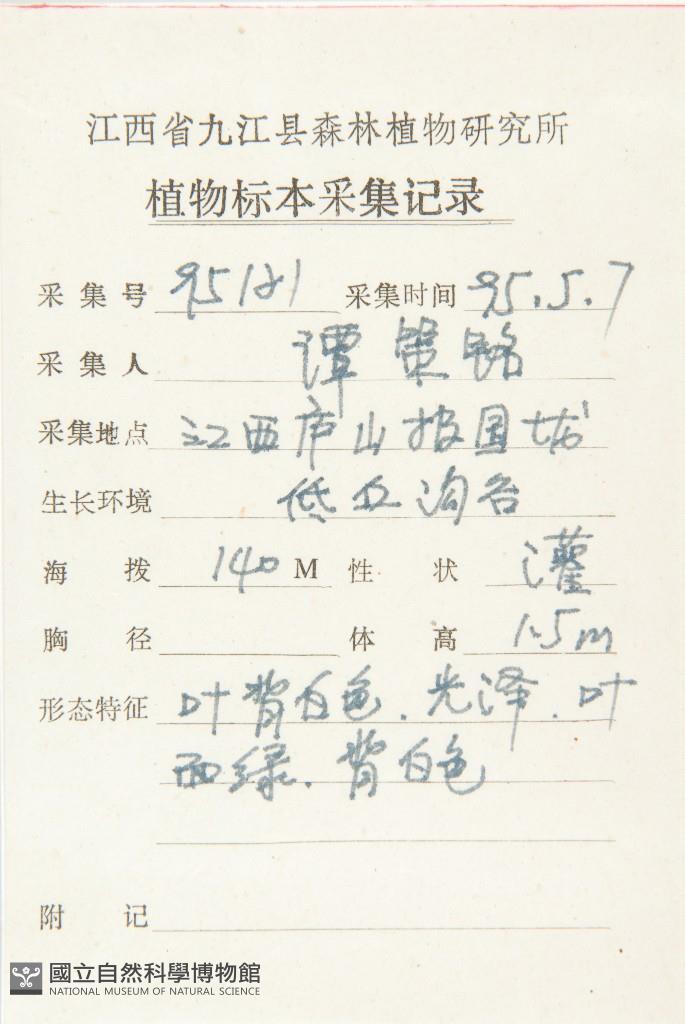 江西省九江县森林植物研究所
植物标本采集记录
采集号 95121 采集时间 95.5.7
采集人 谭策铭
采集地点 江西庐山报国城
生长环境 低丘沟谷
海拨 140 M 性状 灌
胸径 体高 1.5m
形态特征 叶背白色.光泽.叶
面绿.背白色
附记
國立自然科學博物館
NATIONAL MUSEUM OF NATURAL SCIENCE